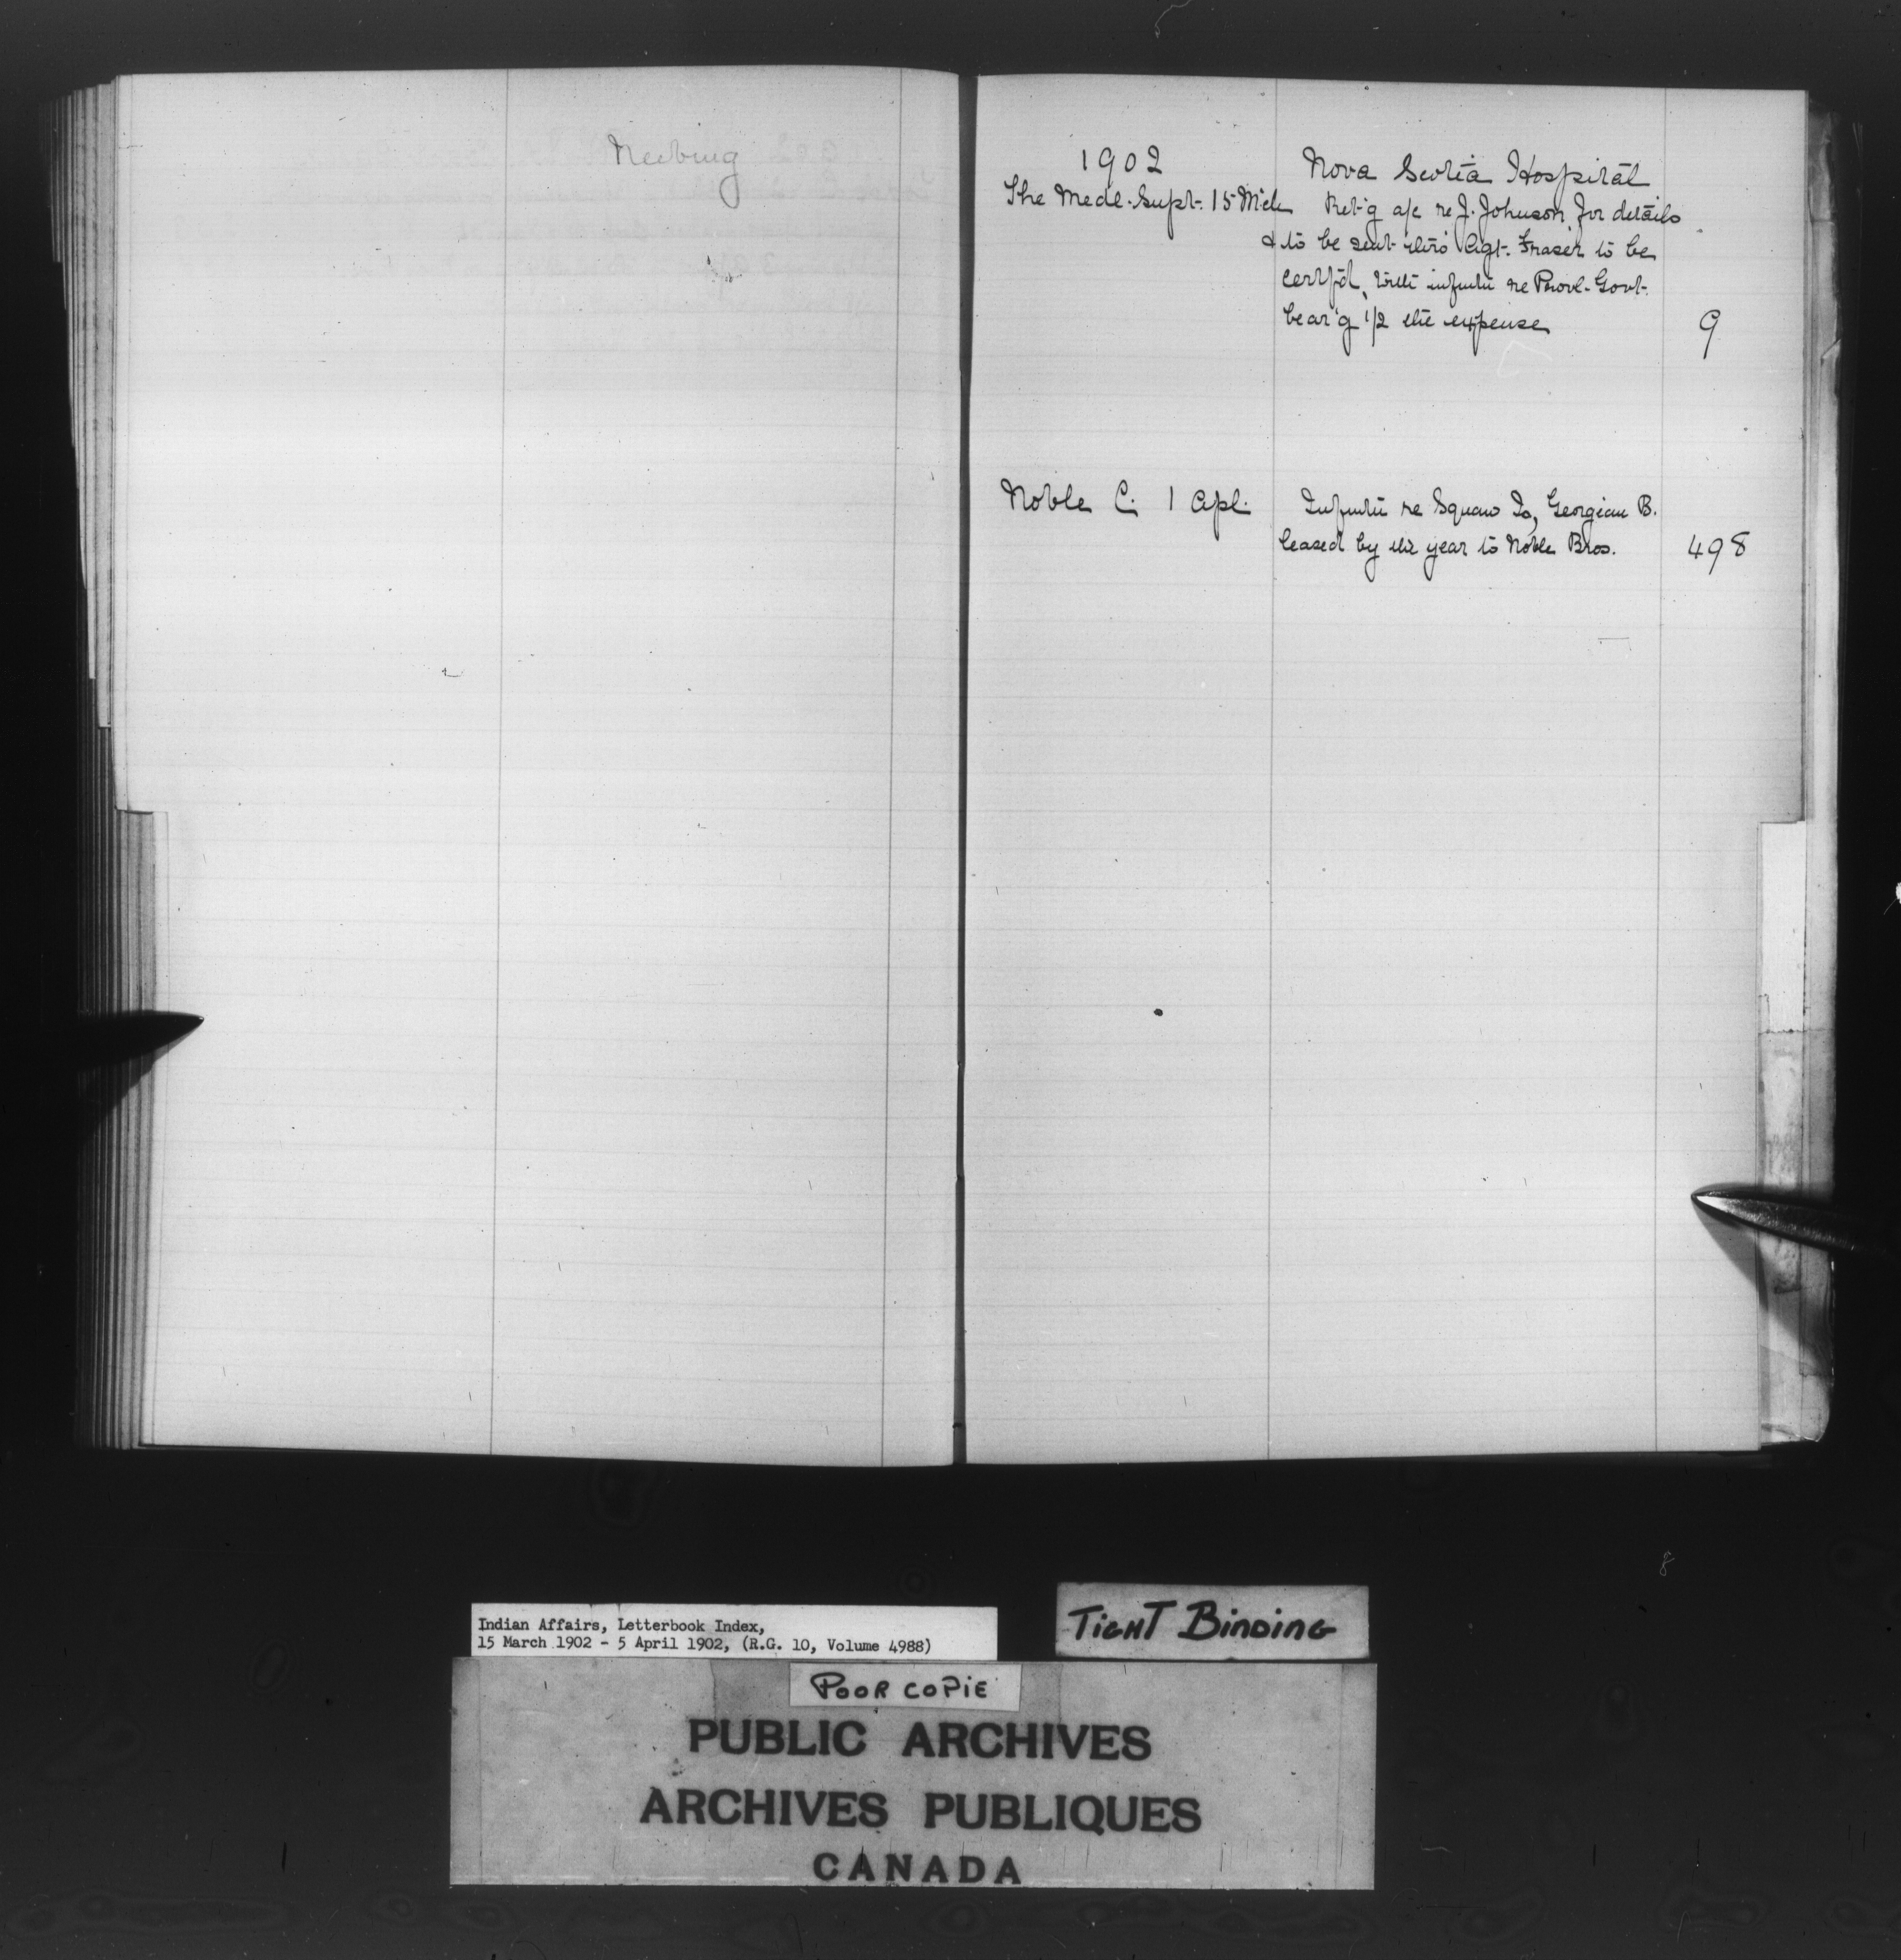 Neebing
1902
Nova Scotia Hospital
The Medl. Supt. 15 Mch
Ret'g a/c re J. Johnson for details
& to be sent thro' Agt. Fraser to be
certf'd, with infmtn re Provl. Govt.
bear'g 1/2 the expense
9
Noble C. 1 Apl.
Infmtn re Squaw Is, Georgian B.
leased by the year to Noble Bros.
498
Indian Affairs, Letterbook Index,
15 March 1902 - 5 April 1902, (R.G. 10, Volume 4988)
TIGHT BINDING
POOR COPIE
PUBLIC ARCHIVES
ARCHIVES PUBLIQUES
CANADA